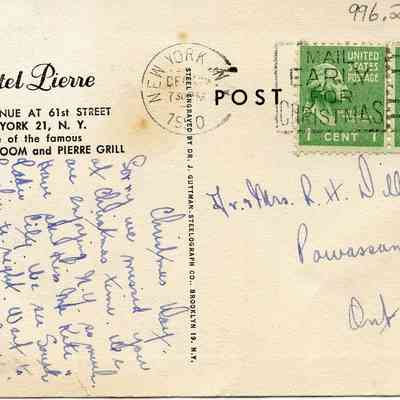 996.2
tel Pierre
ENUE AT 61st STREET
YORK 21, N. Y.
e of the famous
OOM and PIERRE GRILL
NEW YORK, N
DEC
7 30 PM
1950
MAIL
EARLY
FOR
CHRISTMAS
UNITED
STATES
POSTAGE
1 CENT 1
POST
STEEL ENGRAVED BY DR. J. GUTTMAN-STEELOGRAPH CO., BROOKLYN 19, N.Y.
Christmas Day.
Sorry we missed you
at Christmas time. We
are enjoying N.Y. so much.
Have
"Kiss Me Kate"
City. We see South
to night. Want to
Mrs. R. H.
Powassan
Ont